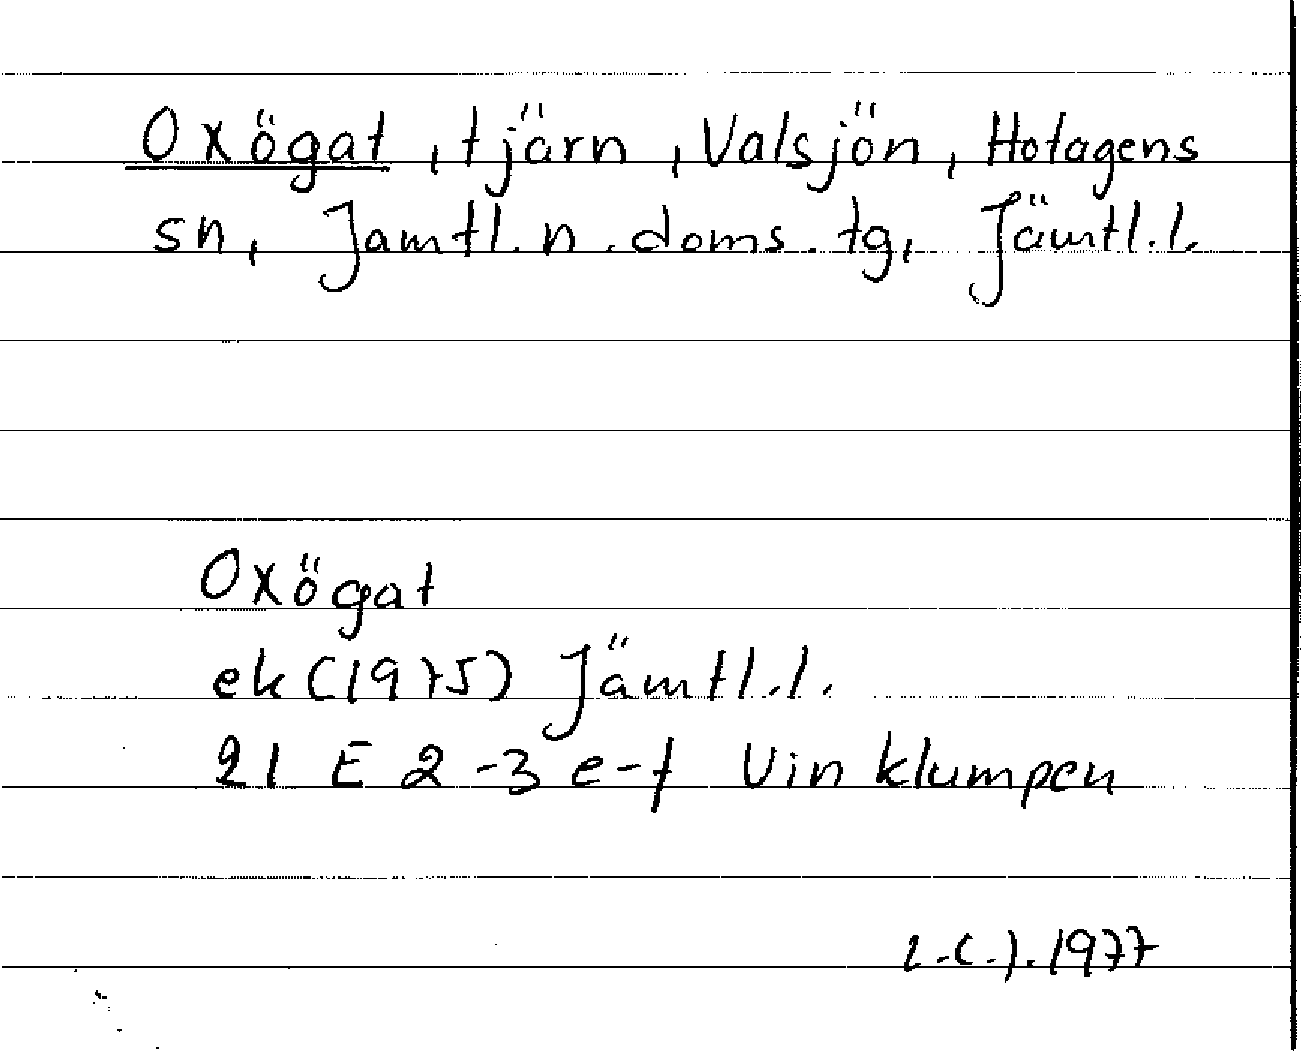 Oxögat, tjärn, Valsjön, Hotagens
sn, Jamtl. n. doms. tg, Jämtl. l.
Oxögat
ek (1975) Jämtl. l.
21 E 2-3 e-f Vinklumpen
1977